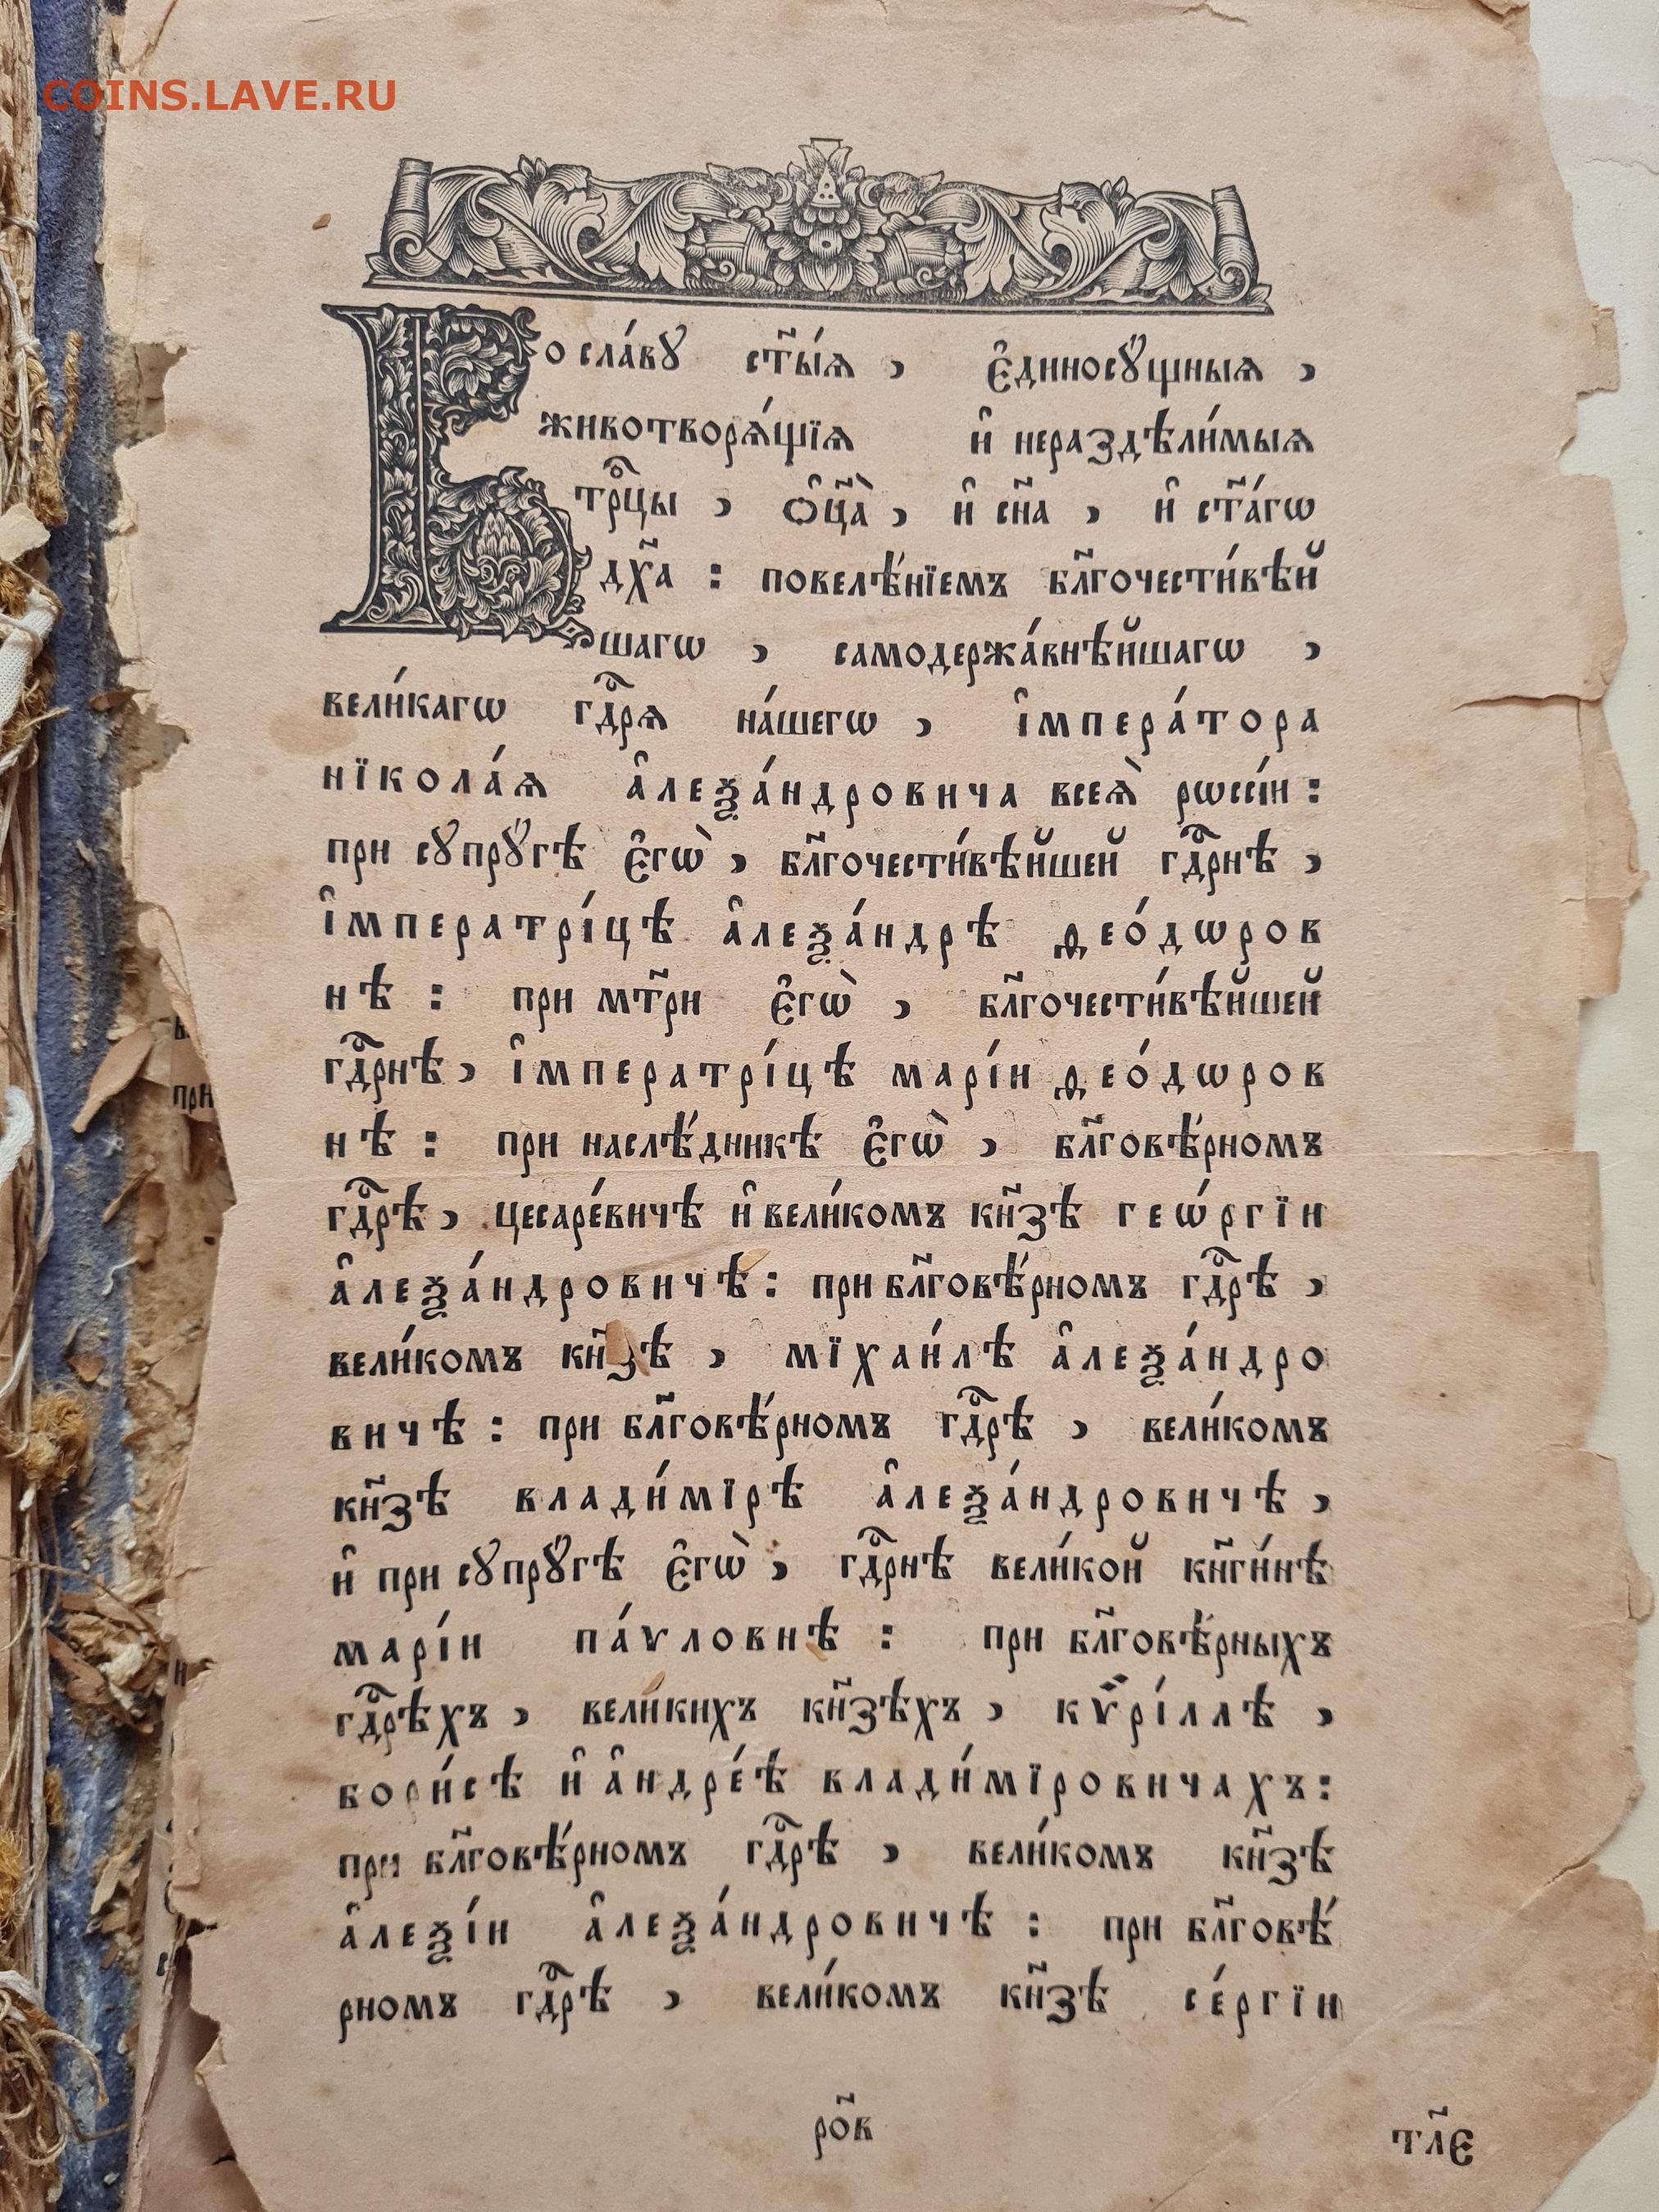 COINS.LAVE.RU
Во сла́вꙋ ст҃ы́ѧ , є҆диносꙋ́щныѧ ,
животворѧ́щїѧ и҆ нераздѣли́мыѧ
трⷪ҇цы , ѻ҆ц҃а̀ , и҆ сн҃а , и҆ ст҃а́гѡ
дх҃а : повелѣ́нїемъ бл҃гочести́вѣй
шагѡ , самодержа́внѣйшагѡ ,
вели́кагѡ гдⷭ҇рѧ на́шегѡ , і҆мпера́тора
нїкола́ѧ а҆леѯа́ндровича всеѧ̀ рѡссі́и :
при сꙋпрꙋ́гѣ є҆гѡ̀ , бл҃гочести́вѣйшей гдⷭ҇рнѣ ,
і҆мператрі́цѣ а҆леѯа́ндрѣ ѳео́дѡров
нѣ : при мт҃ри є҆гѡ̀ , бл҃гочести́вѣйшей
гдⷭ҇рнѣ , і҆мператрі́цѣ марі́и ѳео́дѡров
нѣ : при наслѣ́дникѣ є҆гѡ̀ , бл҃говѣ́рномъ
гдⷭ҇рѣ , цесаре́вичѣ и҆ вели́комъ кн҃зѣ геѡ́ргїи
а҆леѯа́ндровичѣ : при бл҃говѣ́рномъ гдⷭ҇рѣ ,
вели́комъ кн҃зѣ , мїхаи́лѣ а҆леѯа́ндро
вичѣ : при бл҃говѣ́рномъ гдⷭ҇рѣ , вели́комъ
кн҃зѣ влади́мїрѣ а҆леѯа́ндровичѣ ,
и҆ при сꙋпрꙋ́гѣ є҆гѡ̀ , гдⷭ҇рнѣ вели́кой кн҃ги́нѣ
марі́и па́ѵловнѣ : при бл҃говѣ́рныхъ
гдⷭ҇рѣхъ , вели́кихъ кн҃зѣхъ , кѷрі́ллѣ ,
бори́сѣ и҆ а҆ндре́ѣ влади́мїровичахъ :
при бл҃говѣ́рномъ гдⷭ҇рѣ , вели́комъ кн҃зѣ
а҆леѯі́и а҆леѯа́ндровичѣ : при бл҃говѣ́
рномъ гдⷭ҇рѣ , вели́комъ кн҃зѣ се́ргїи
ро҃в
тл҃є